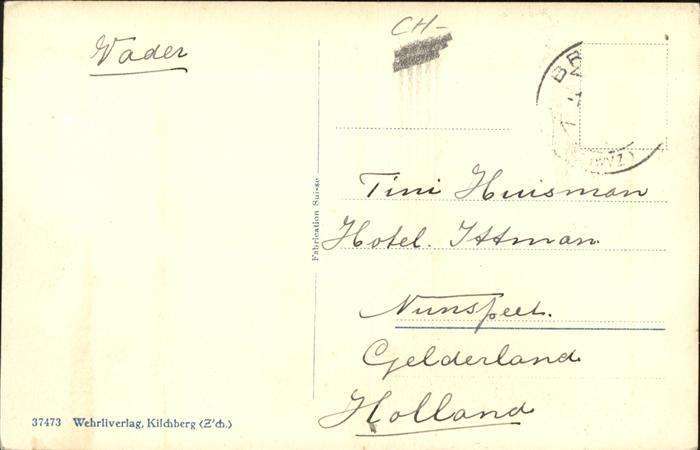 Vader
CH-
BR
(SWYZ)
Fabrication Suisse
Tini Huisman
Hotel. Ittman
Nunspeet.
Gelderland
Holland
37473 Wehrliverlag, Kilchberg (Z'ch.)